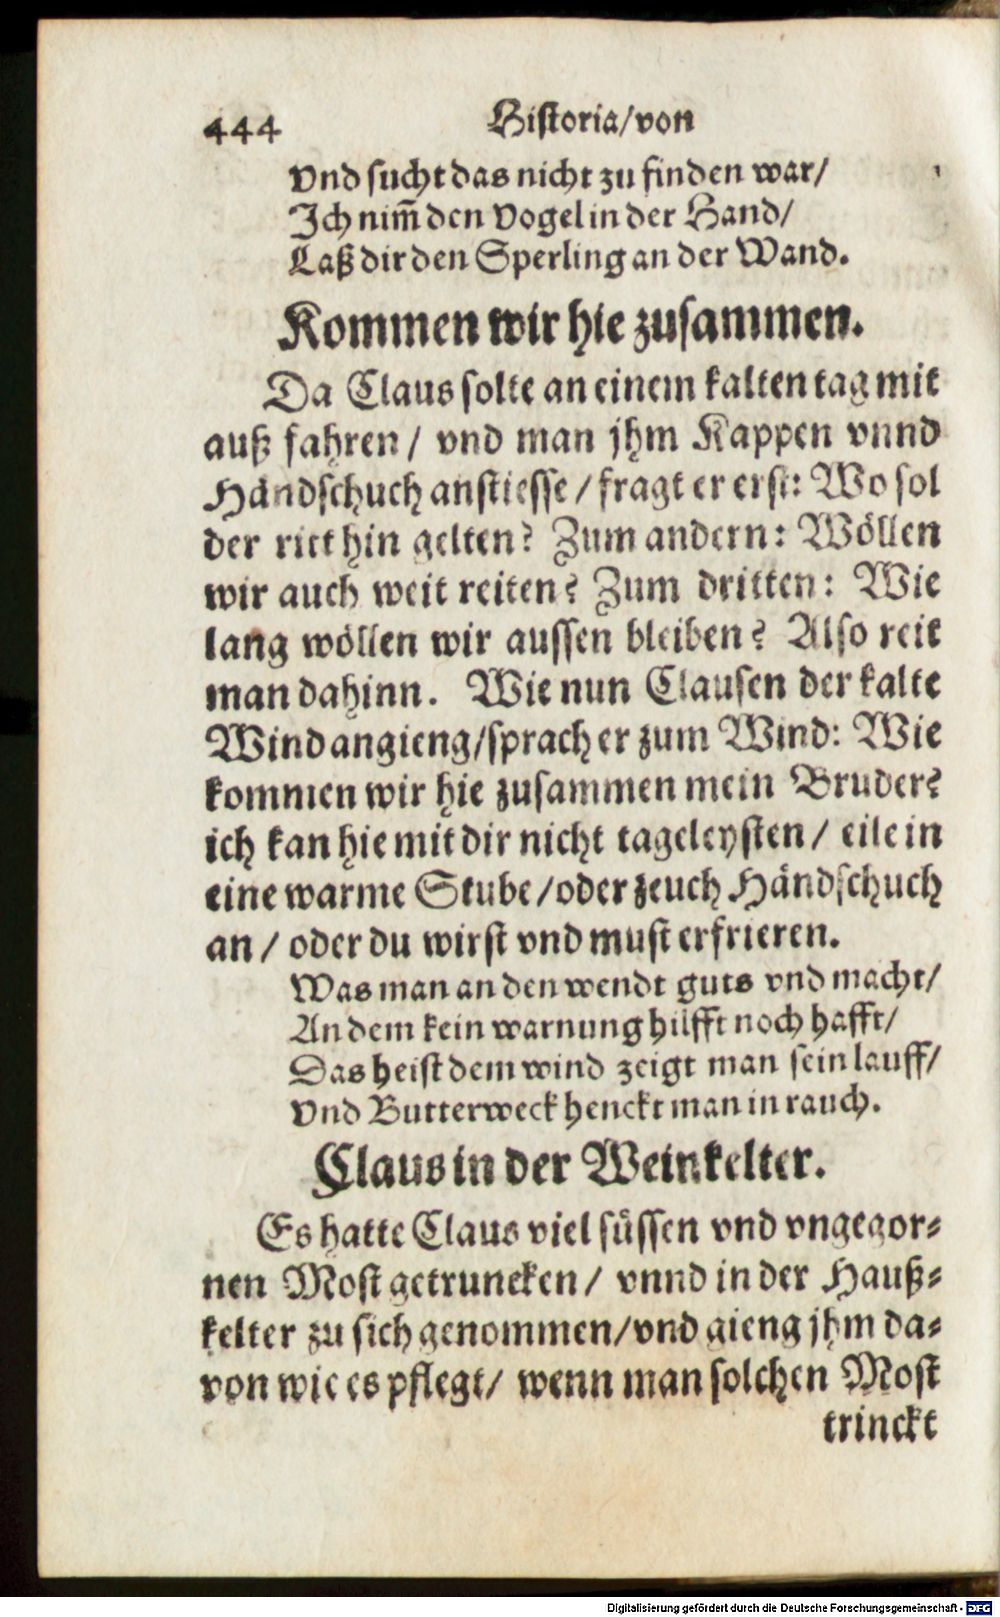 444 Historia/von
vnd sucht das nicht zu finden war/
Ich nim̃ den Vogel in der Hand/
Laß dir den Sperling an der Wand.
Kommen wir hie zusammen.
Da Claus solte an einem kalten tag mit
auß fahren/ vnd man jhm Kappen vnnd
Händschuch anstiesse/fragt er erst: Wo sol
der ritt hin gelten? Zum andern: Wöllen
wir auch weit reiten? Zum dritten: Wie
lang wöllen wir aussen bleiben? Also reit
man dahinn. Wie nun Clausen der kalte
Wind angieng/sprach er zum Wind: Wie
kommen wir hie zusammen mein Bruder?
ich kan hie mit dir nicht tageleysten/ eile in
eine warme Stube/oder zeuch Händschuch
an/ oder du wirst vnd must erfrieren.
Was man an den wendt guts vnd macht/
An dem kein warnung hilfft noch hafft/
Das heist dem wind zeigt man sein lauff/
Vnd Butterweck henckt man in rauch.
Claus in der Weinkelter.
Es hatte Claus viel süssen vnd vngegor-
nen Most getruncken/ vnnd in der Hauß-
kelter zu sich genommen/vnd gieng jhm da-
von wie es pflegt/ wenn man solchen Most
trinckt
Digitalisierung gefördert durch die Deutsche Forschungsgemeinschaft - DFG